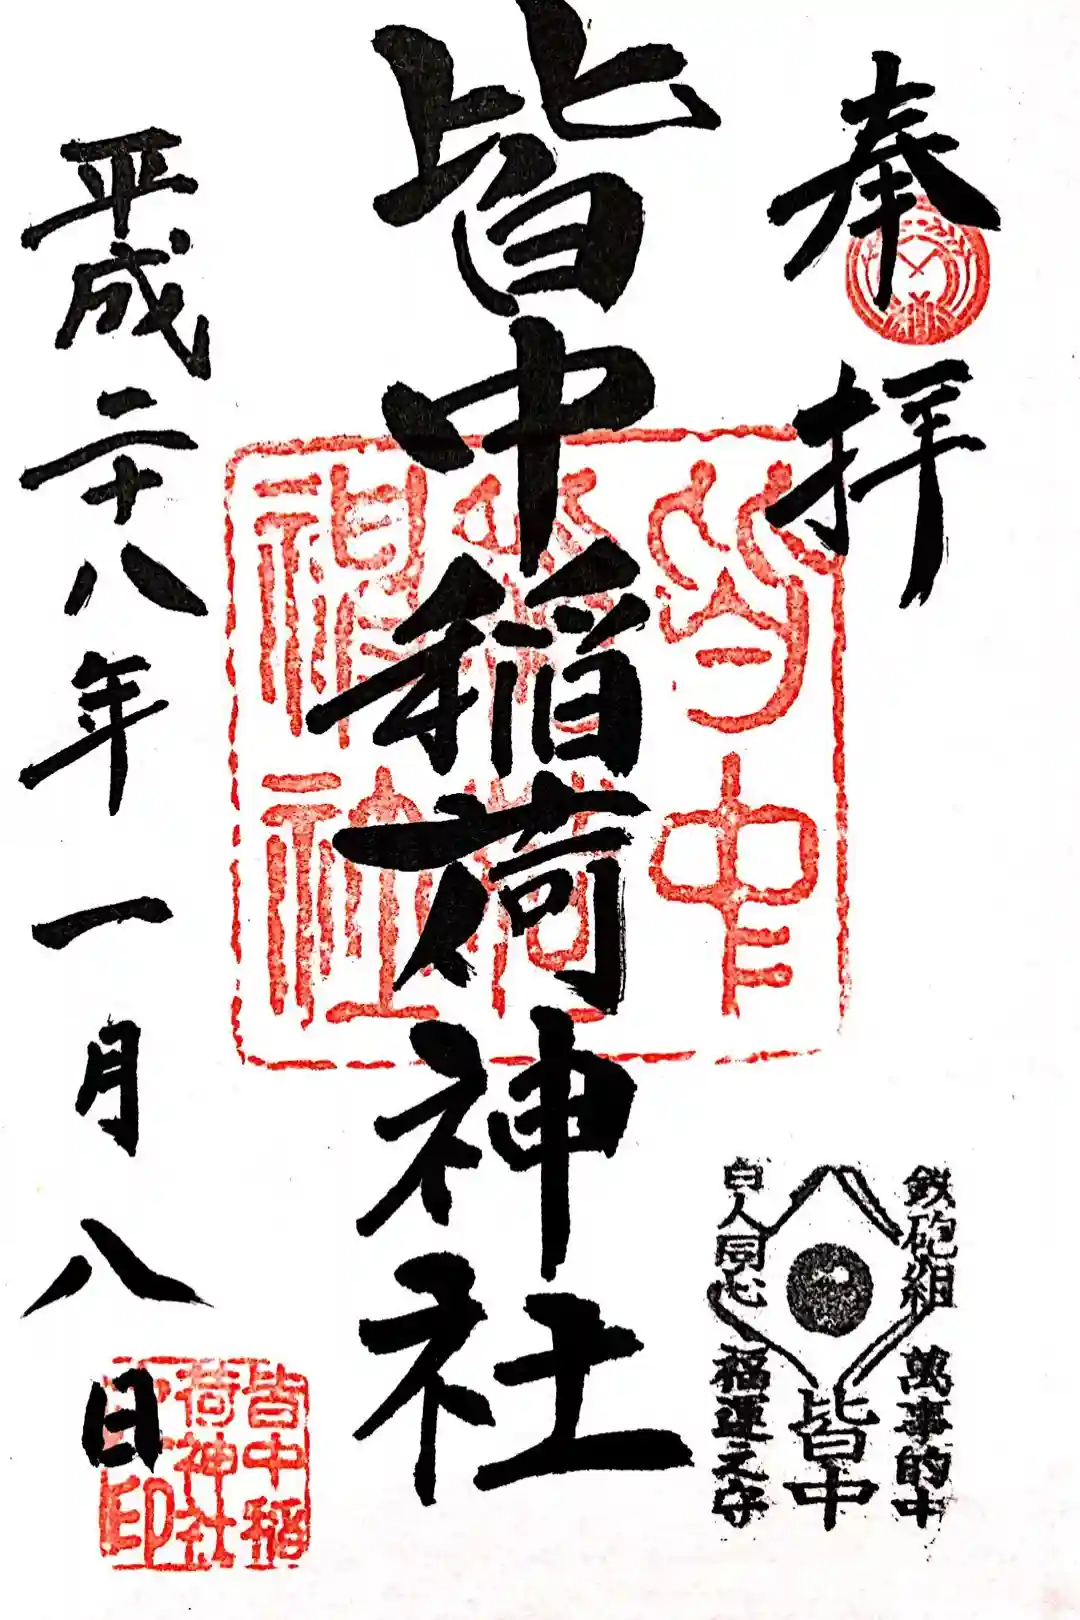 奉拝
皆中稲荷神社
平成二十八年一月八日
皆中
稲荷
神社
鉄砲組
百人同心
萬事的中
皆中
福運之守
皆中稲
荷神社
印